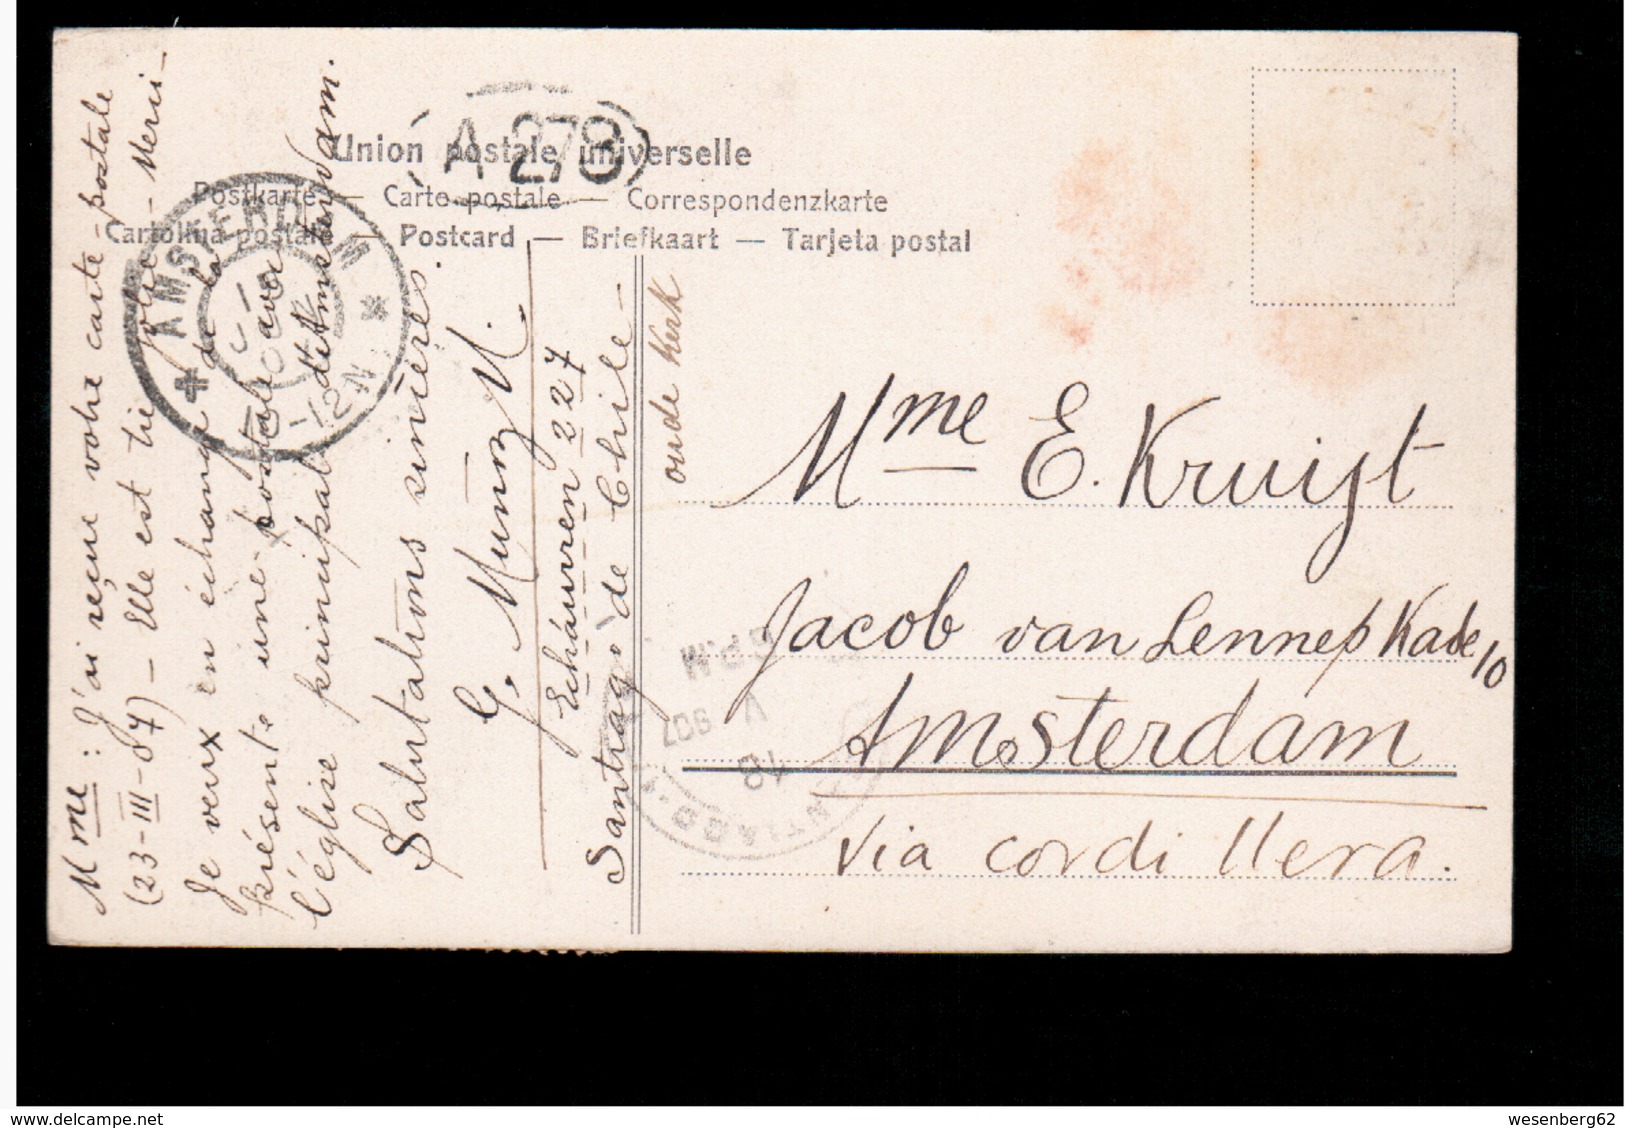 Union postale universelle
Postkarte — Carte postale — Correspondenzkarte
Cartolina postale — Postcard — Briefkaart — Tarjeta postal
A 278
AMSTERDAM
12-1N
Mme : J'ai reçue votre carte-postale
(23-III-07) — Elle est très jolie — Merci —
Je veux en échange de la
présente une postale avec
l'église principal d'Amsterdam.
Salutations sincères.
G. Munoz M.
Echáurren 227
Santiago de Chile —
oude Kerk
Mme E. Kruijt
Jacob van Lennep Kade 10
Amsterdam
via cordillera.
SANTIAGO
18 V 907
6 P.M
delcampe.net
wesenberg62